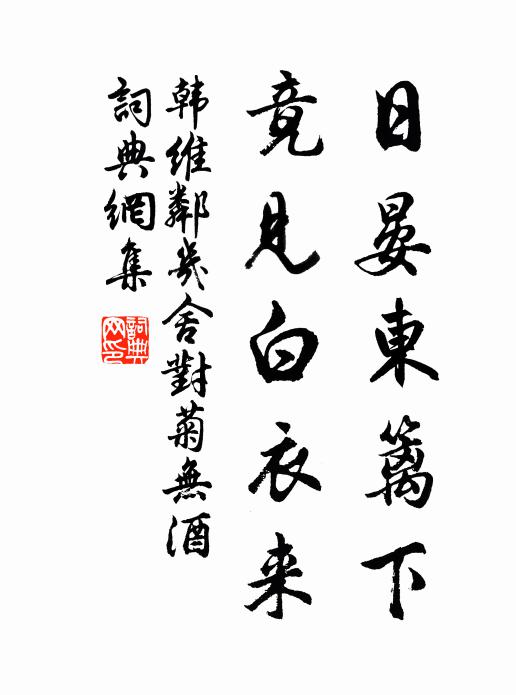 日晏東籬下
竟見白衣来
韩維鄰幾舍對菊無酒
詞典網集
詞典網印